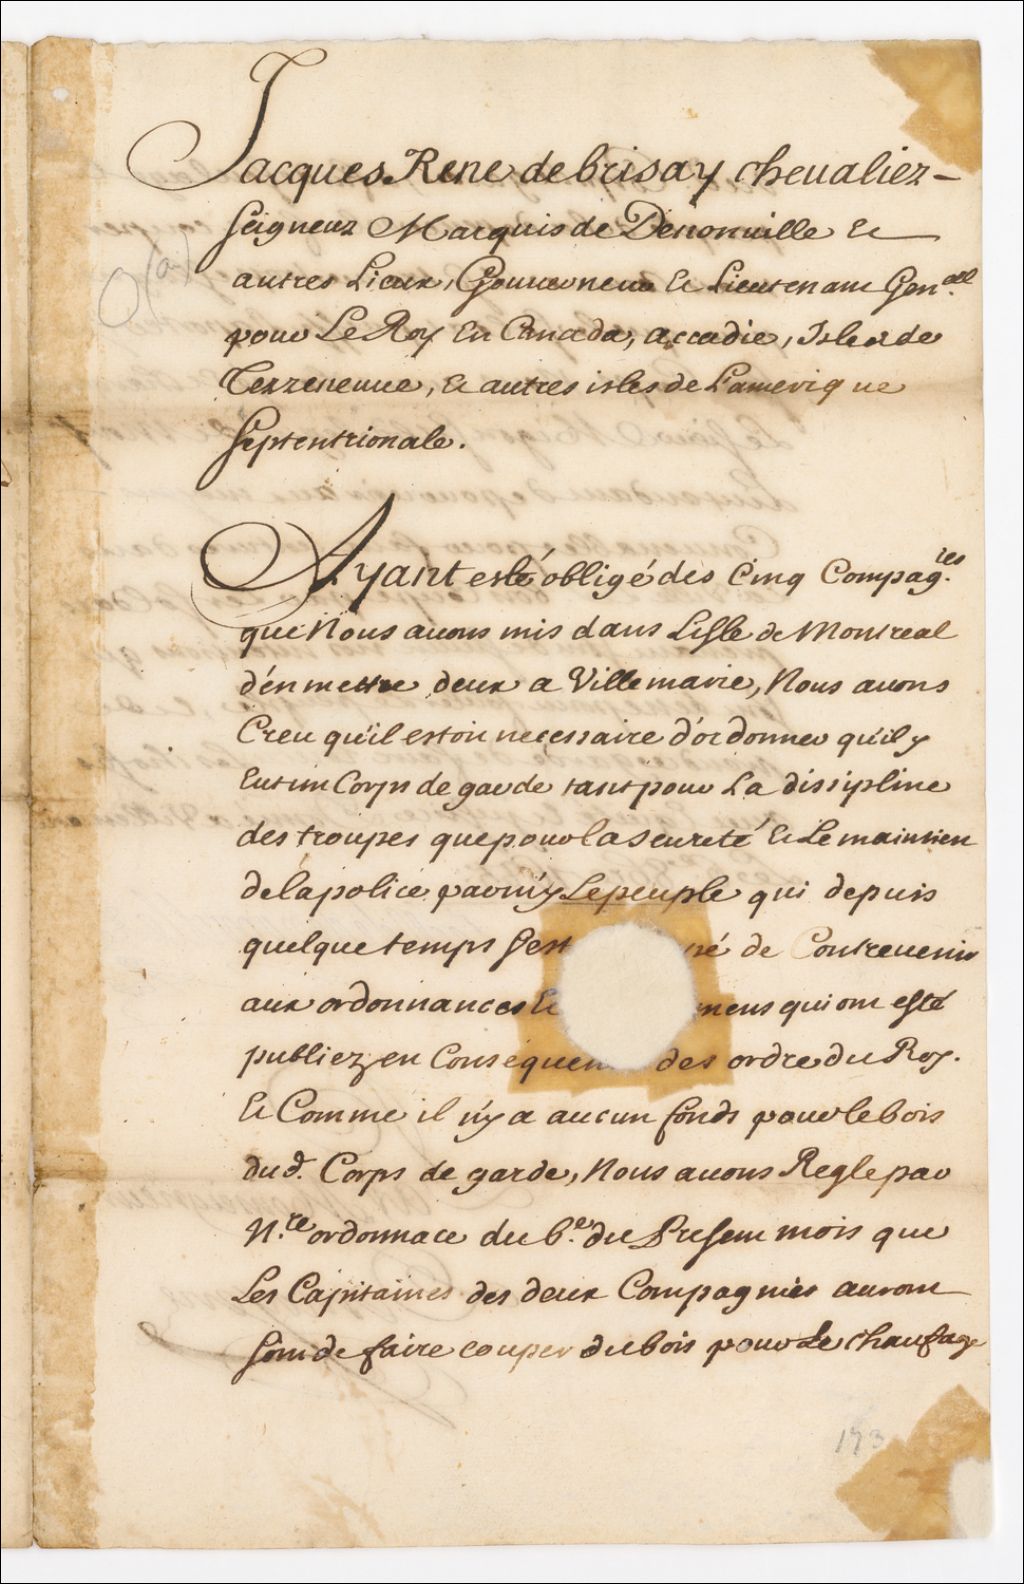 Jacques Rene de brisay chevalier
seigneur Marquis de Denonuille &
autres Lieux, Gouuerneur & Lieutenant Gen.al
pour Le Roy En Canada, accadie, Isles de
Terreneuue, & autres isles de L'amerique
septentrionale.
Ayant esté obligé des Cinq Compag.ies
que Nous auons mis dans L'isle de Montreal
d'en mettre deux a Villemarie, Nous auons
Creu qu'il estoit necessaire d'ordonner qu'il y
Eut un Corps de garde tant pour La dissipline
des troupes que pour la seureté & Le maintien
de la police parmy Le peuple qui depuis
quelque temps s'est né de Contreuenir
aux ordonnances & mens qui ont esté
publiez en Consequen des ordre du Roy.
& Comme il n'y a aucun fonds pour le bois
du d. Corps de garde, Nous auons Regle par
N.re ordonnace du 6.e du Present mois que
Les Capitaines des deux Compagnies auront
soin de faire couper du bois pour Le chaufage
(a)
173